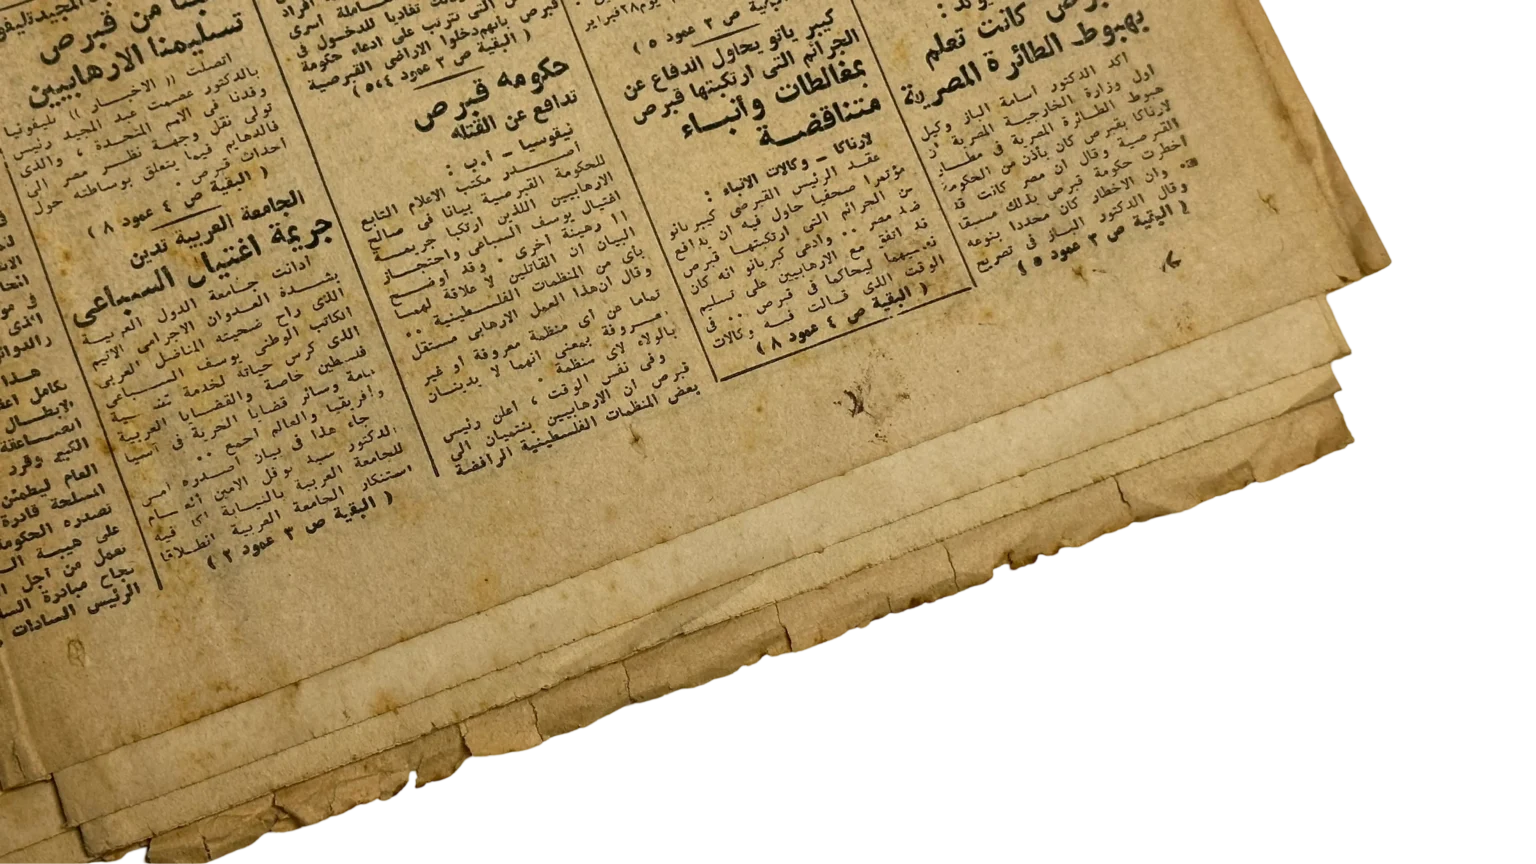 كانت تعلم
بهبوط الطائرة المصرية
اكد الدكتور اسامة الباز وكيل
اول وزارة الخارجية المصرية ان
هبوط الطائرة المصرية فى مطار
لارناكا بقبرص كان بأذن من الحكومة
القبرصية وقال ان مصر كانت قد
اخطرت حكومة قبرص بذلك مسبقا
وان الاخطار كان محددا بنوعه
وقال الدكتور الباز فى تصريح
( البقية ص ٣ عمود ٥ )
البقية ص ٣ عمود ٥ )
كيبر يانو يحاول الدفاع عن
الجرائم التى ارتكبتها قبرص
بمغالطات وأنباء
متناقضة
لارناكا - وكالات الانباء :
عقد الرئيس القبرصى كيبريانو
مؤتمرا صحفيا حاول فيه ان يدافع
عن الجرائم التى ارتكبتها قبرص
ضد مصر .. وادعى كبريانو انه كان
قد اتفق مع الارهابيين على تسليم
نفسيهما ليحاكما فى قبرص .. فى
الوقت الذى قالت فيه وكالات
( البقية ص ٤ عمود ٨ )
تفاديا للدخول فى
التى تترتب على ادعاء حكومة
قبرص بانهم دخلوا الاراضى القبرصية
( البقية ص ٣ عمود ٥،٤ )
حكومة قبرص
تدافع عن القتلة
نيقوسيا - ا.ب :
اصدر مكتب الاعلام التابع
للحكومة القبرصية بيانا فى صالح
الارهابيين اللذين ارتكبا جريمة
اغتيال يوسف السباعى واحتجاز
١١ رهينة اخرى . وقد اوضح
البيان ان القاتلين لا علاقة لهما
بأى من المنظمات الفلسطينية ..
وقال ان هذا العمل الارهابى مستقل
تماما عن اى منظمة معروفة او غير
معروفة بمعنى انهما لا يدينان
بالولاء لاى منظمة .
وفى نفس الوقت ، اعلن رئيس
قبرص ان الارهابيين ينتميان الى
بعض المنظمات الفلسطينية الرافضة
من قبرص
تسليمنا الارهابيين
اتصلت (( الاخبار )) تليفونيا
بالدكتور عصمت عبد المجيد رئيس
وفدنا فى الامم المتحدة ، والذى
تولى نقل وجهة نظر مصر الى
فالدهايم فيما يتعلق بوساطته حول
احداث قبرص .
( البقية ص ٤ عمود ٨ )
الجامعة العربية تدين
جريمة اغتيال السباعى
ادانت جامعة الدول العربية
بشدة العدوان الاجرامى الاثيم
الذى راح ضحيته المناضل العربى
الكاتب الوطنى يوسف السباعى
الذى كرس حياته لخدمة قضية
فلسطين خاصة والقضايا العربية
عامة وسائر قضايا الحرية فى آسيا
وافريقيا والعالم اجمع ..
جاء هذا فى بيان اصدره امس
الدكتور سيد نوفل الامين العام
للجامعة العربية بالنيابة اكد فيه
استنكار الجامعة العربية انطلاقا
( البقية ص ٣ عمود ٢ )
هذا
بكامل
الابطال
الصاعقة
وقرر
العام ليطمئن
المسلحة قادرة
تصدره الحكومة
على هيبة
نعمل من أجل
نجاح مبادرة
الرئيس السادات